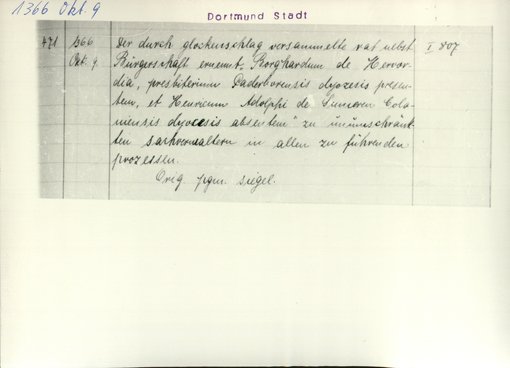 1366 Okt. 9
Dortmund Stadt
471 1366 Der durch glockenschlag versammelte rat nebst I 807
Okt. 9 Bürgerschaft ernennt „Borghardum de Hervor-
dia, presbiterum Paderborensis dyocesis presen-
tem, et Henricum Adolphi de Sumeren Colo-
niensis dyocesis absentem" zu unumschränk-
ten sachverwaltern in allen zu führenden
prozessen.
Orig. pgm. siegel.